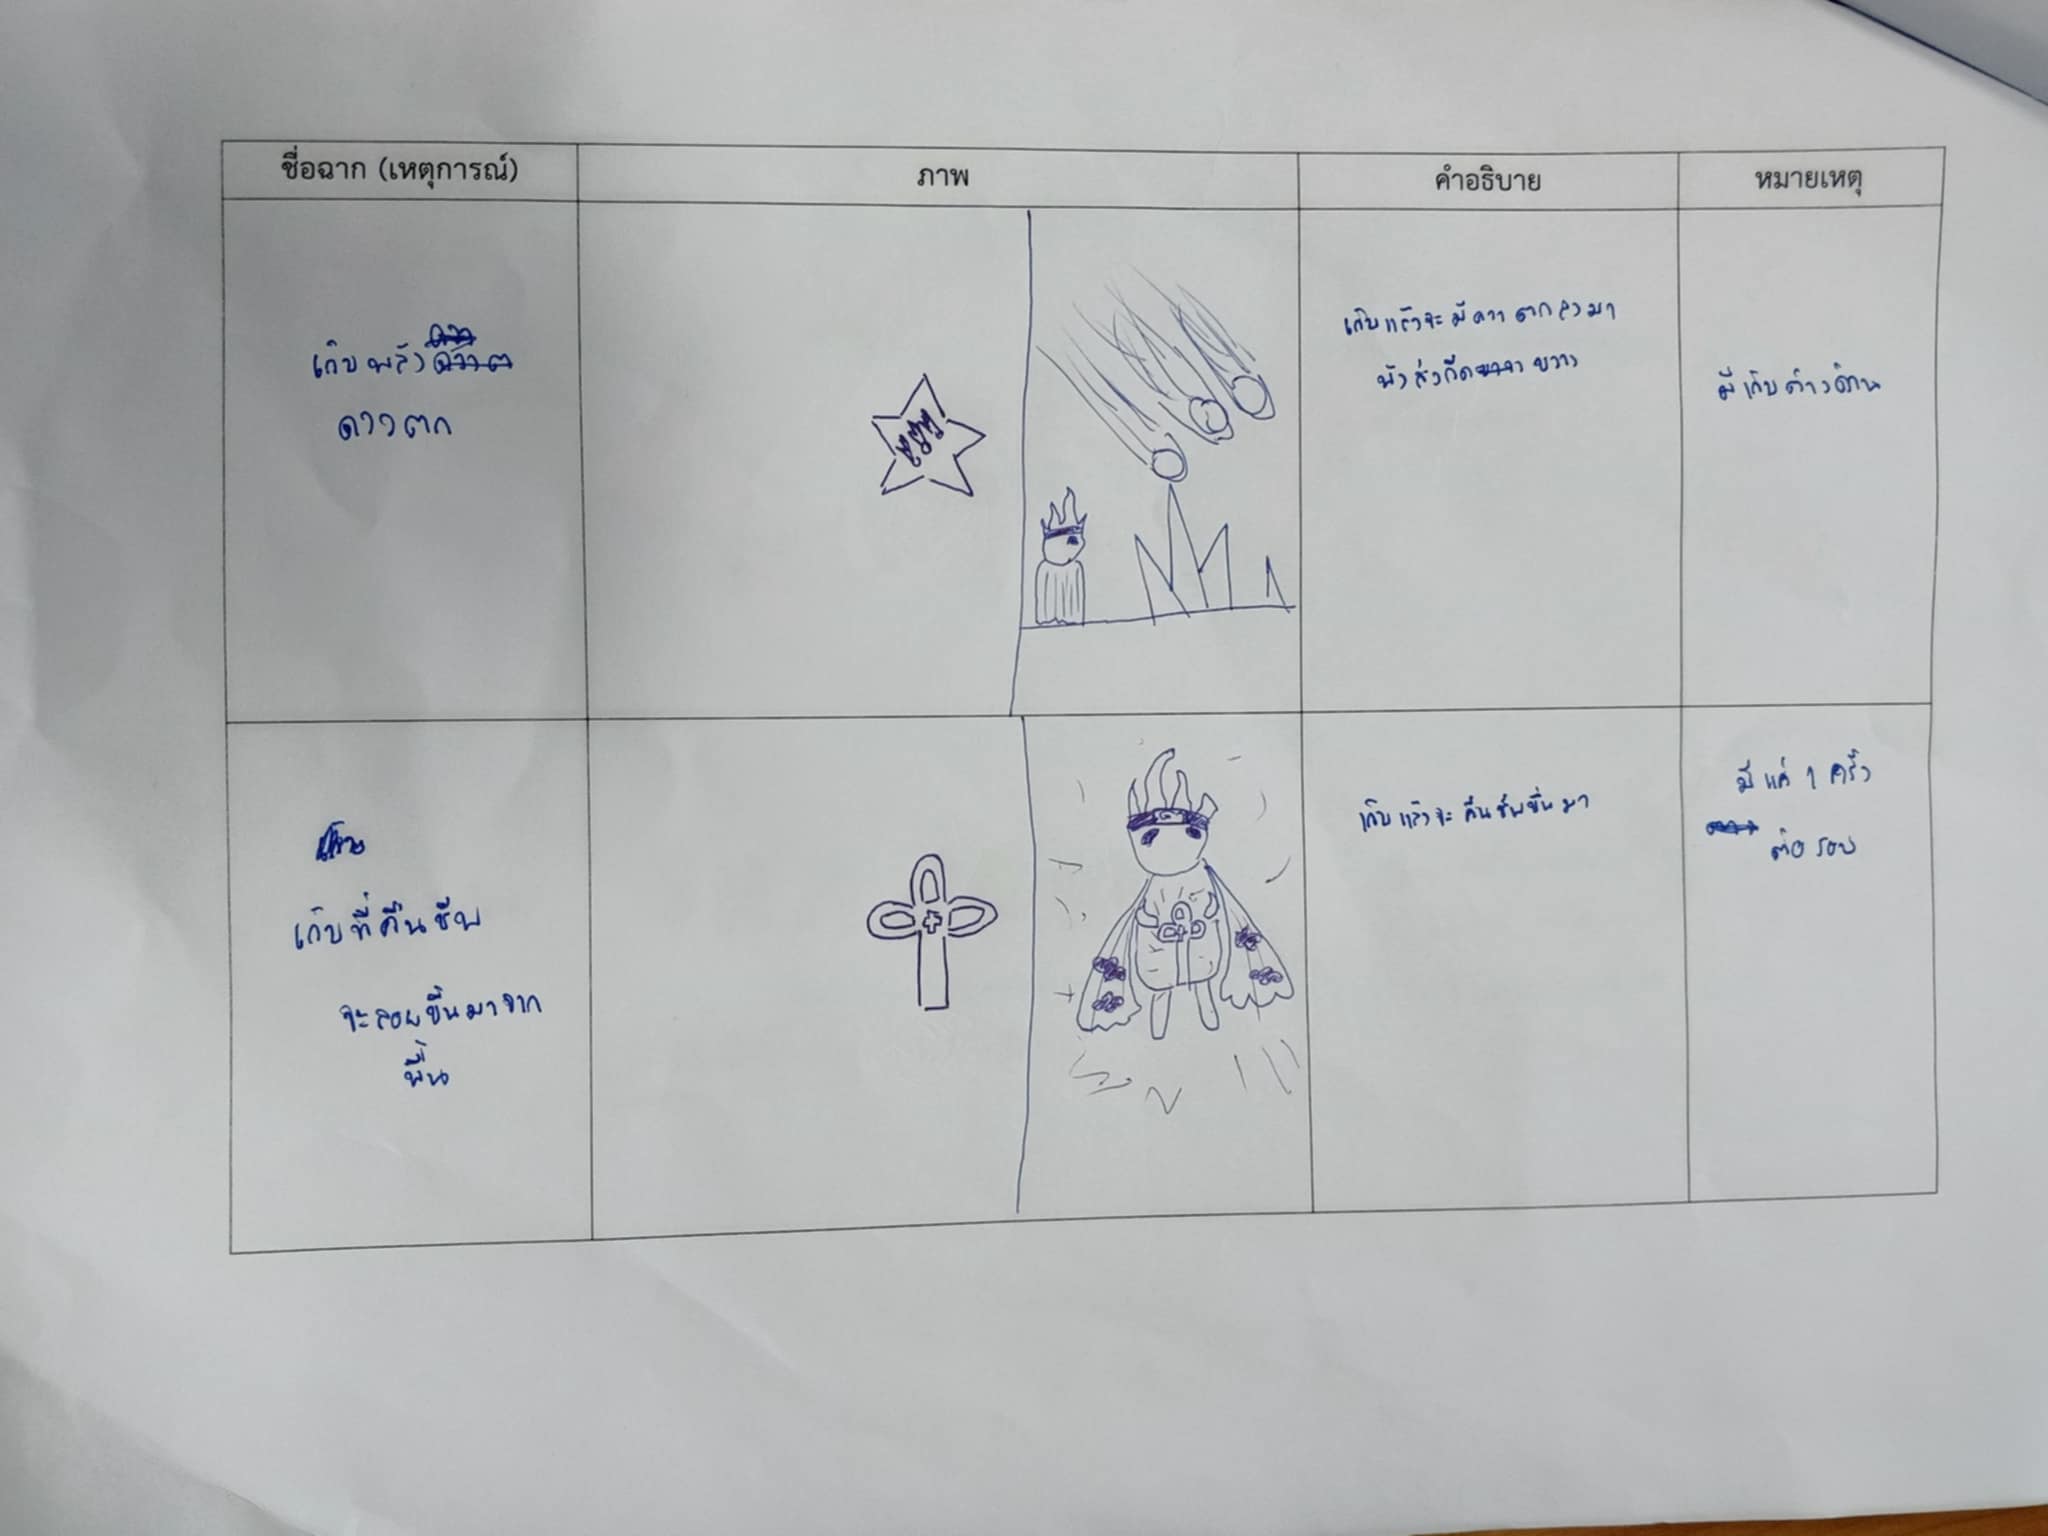 ชื่อฉาก (เหตุการณ์)
ภาพ
คำอธิบาย
หมายเหตุ
เก็บพลัง
ดาวตก
เก็บแล้วจะมีดาวตกลงมา
พังสิ่งกีดขวาง
มีเก็บด่าวด้าน
เก็บที่คืนชีพ
จะลอยขึ้นมาจาก
พื้น
เก็บแล้วจะคืนชีพขึ้นมา
มีแค่ 1 ครั้ง
ต่อรอบ